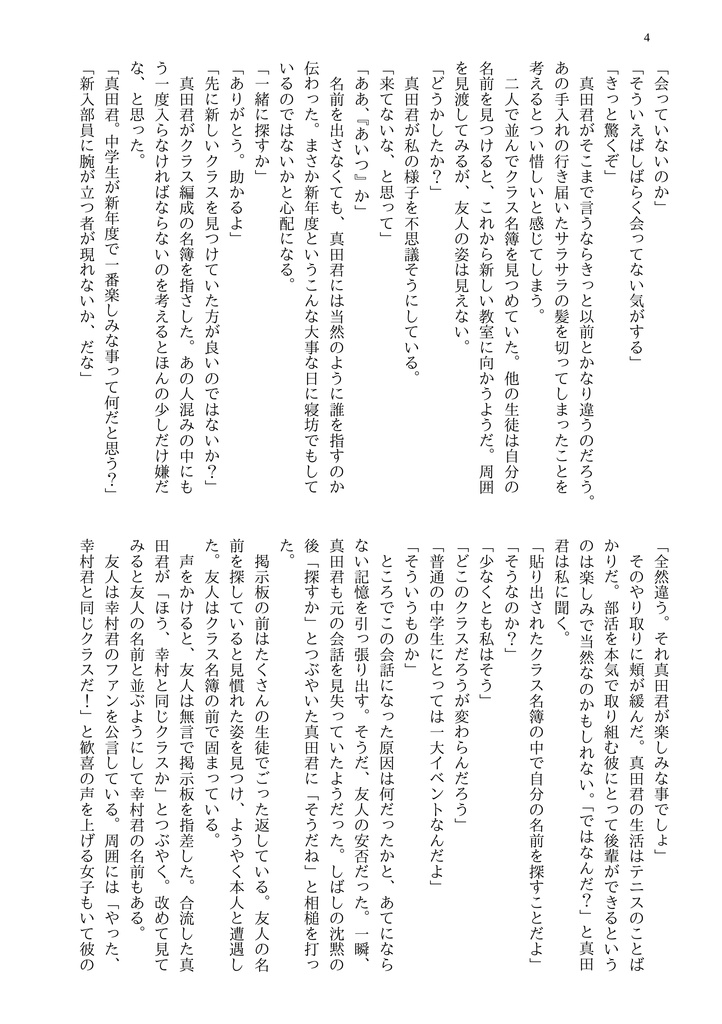 4
「会っていないのか」
「そういえばしばらく会ってない気がする」
「きっと驚くぞ」
　真田君がそこまで言うならきっと以前とかなり違うのだろう。
あの手入れの行き届いたサラサラの髪を切ってしまったことを
考えるとつい惜しいと感じてしまう。
　二人で並んでクラス名簿を見つめていた。他の生徒は自分の
名前を見つけると、これから新しい教室に向かうようだ。周囲
を見渡してみるが、友人の姿は見えない。
「どうかしたか？」
　真田君が私の様子を不思議そうにしている。
「来てないな、と思って」
「ああ、『あいつ』か」
　名前を出さなくても、真田君には当然のように誰を指すのか
伝わった。まさか新年度というこんな大事な日に寝坊でもして
いるのではないかと心配になる。
「一緒に探すか」
「ありがとう。助かるよ」
「先に新しいクラスを見つけていた方が良いのではないか？」
　真田君がクラス編成の名簿を指さした。あの人混みの中にも
う一度入らなければならないのを考えるとほんの少しだけ嫌だ
な、と思った。
「真田君。中学生が新年度で一番楽しみな事って何だと思う？」
「新入部員に腕が立つ者が現れないか、だな」
「全然違う。それ真田君が楽しみな事でしょ」
　そのやり取りに頬が緩んだ。真田君の生活はテニスのことば
かりだ。部活を本気で取り組む彼にとって後輩ができるという
のは楽しみで当然なのかもしれない。「ではなんだ？」と真田
君は私に聞く。
「貼り出されたクラス名簿の中で自分の名前を探すことだよ」
「そうなのか？」
「少なくとも私はそう」
「どこのクラスだろうが変わらんだろう」
「普通の中学生にとっては一大イベントなんだよ」
「そういうものか」
　ところでこの会話になった原因は何だったかと、あてになら
ない記憶を引っ張り出す。そうだ、友人の安否だった。一瞬、
真田君も元の会話を見失っていたようだった。しばしの沈黙の
後「探すか」とつぶやいた真田君に「そうだね」と相槌を打っ
た。
　掲示板の前はたくさんの生徒でごった返している。友人の名
前を探していると見慣れた姿を見つけ、ようやく本人と遭遇し
た。友人はクラス名簿の前で固まっている。
　声をかけると、友人は無言で掲示板を指差した。合流した真
田君が「ほう、幸村と同じクラスか」とつぶやく。改めて見て
みると友人の名前と並ぶようにして幸村君の名前もある。
　友人は幸村君のファンを公言している。周囲には「やった、
幸村君と同じクラスだ！」と歓喜の声を上げる女子もいて彼の